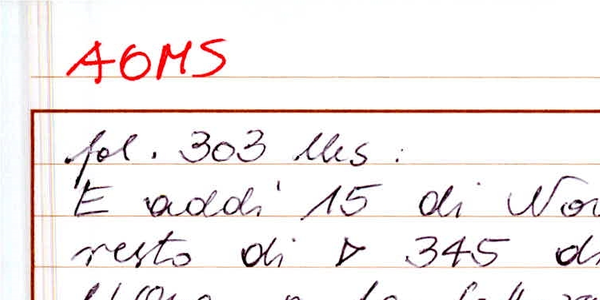 AOMS
fol. 303 Mes :
E addi' 15 di Nov
resto di ▷ 345 di